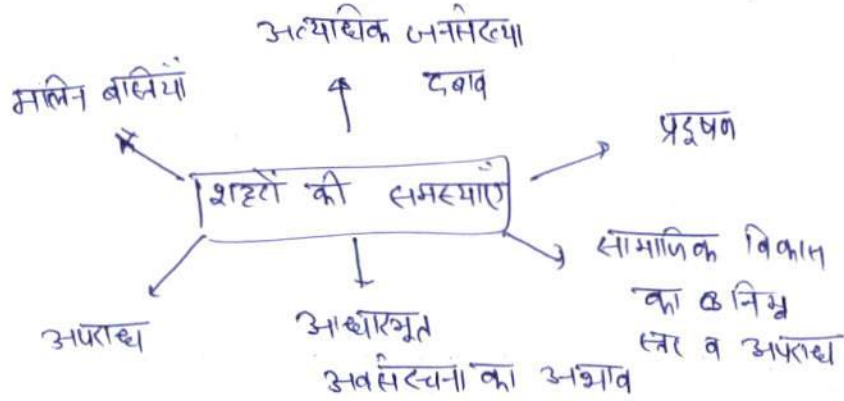 अत्याधिक जनसंख्या
दबाव
मलिन बस्तियाँ
प्रदूषण
शहरों की समस्याएँ
सामाजिक विकास
का निम्न
स्तर व अपराध
अपराध
आधारभूत
अवसंरचना का अभाव